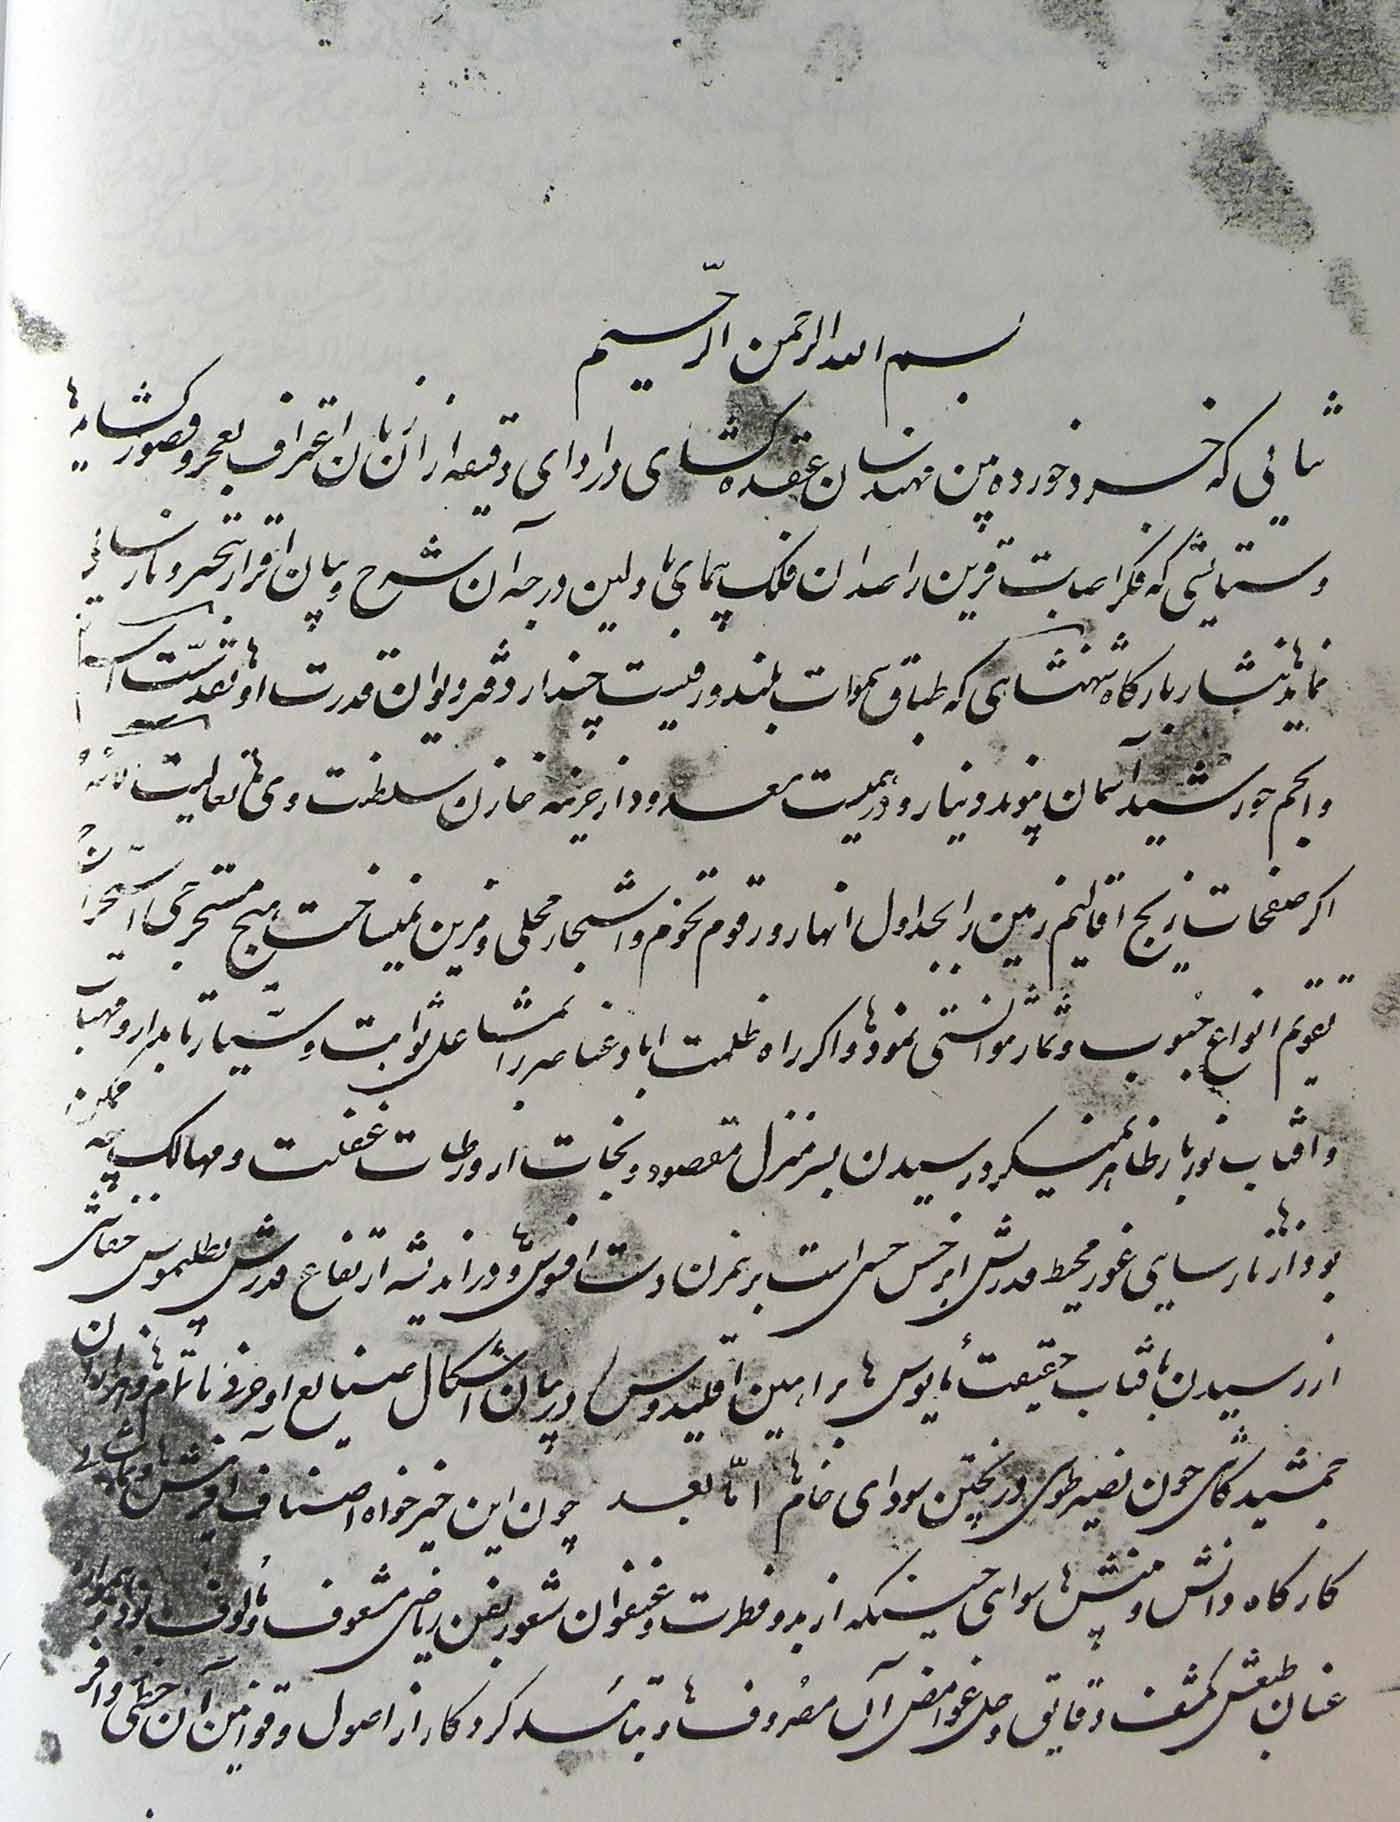 بسم الله الرحمن الرحیم
ثنایی که خرد خورده بین مهندسان عقده کشای در ادای دقیقه از ان زبان اعتراف بعجز و قصور کشاید
و ستایشی که فکر اصابت قرین راصدان فلک پیمای باولین درجه آن شرح و بیان اقرار بتحیر و نارسایی
نماید نثار بارکاه شهنشاهی که طباق سموات بلند و رفیعت چند از دفتر دیوان قدرت او تقدست
و انجم خورشید آسمان پیوند دنیار و درهمیست معدود از خزینه خازن سلطنت وی تعالیت
اکر صفحات زیج اقالیم زمین را بجداول انهار و رقوم تخوم و اشجار محلی و مزین نمیساخت هیچ مستخرجی استخراج
تقویم انواع حبوب و ثمار نتوانستی نمود و اکر راه ظلمت اباد عناصر را بمشاعل ثوابت و سیار تابدار و مهتاب
و افتاب نور بار ظاهر نمیکرد رسیدن بسر منزل مقصود و نجات از ورطات غفلت و مهالک چه ممکن
بود از نارسایی غور محیط قدرتش ابرخس حسی است بر نمزن دست افسوس و در اندیشه ارتفاع قدرش بطلیموس خفاشی
از رسیدن بافتاب حقیقت مایوس براهین اقلیدوس در بیان اشکال صنایع او حرفی ناتمام و هزاران
جمشید کاشی چون نصیر طوسی در پختن سودای خام اما بعد چون این خیرخواه اصناف آفرینش
کارکاه دانش و بینش سوای حینکه از بدو فطرت و عنفوان شعور بفن ریاضی مشعوف و مالوف بود و همواره
عنان طبعش بکشف دقایق و حل غوامض آن مصروف و بتائید کردکار از اصول و قوانین آن حظی وافر